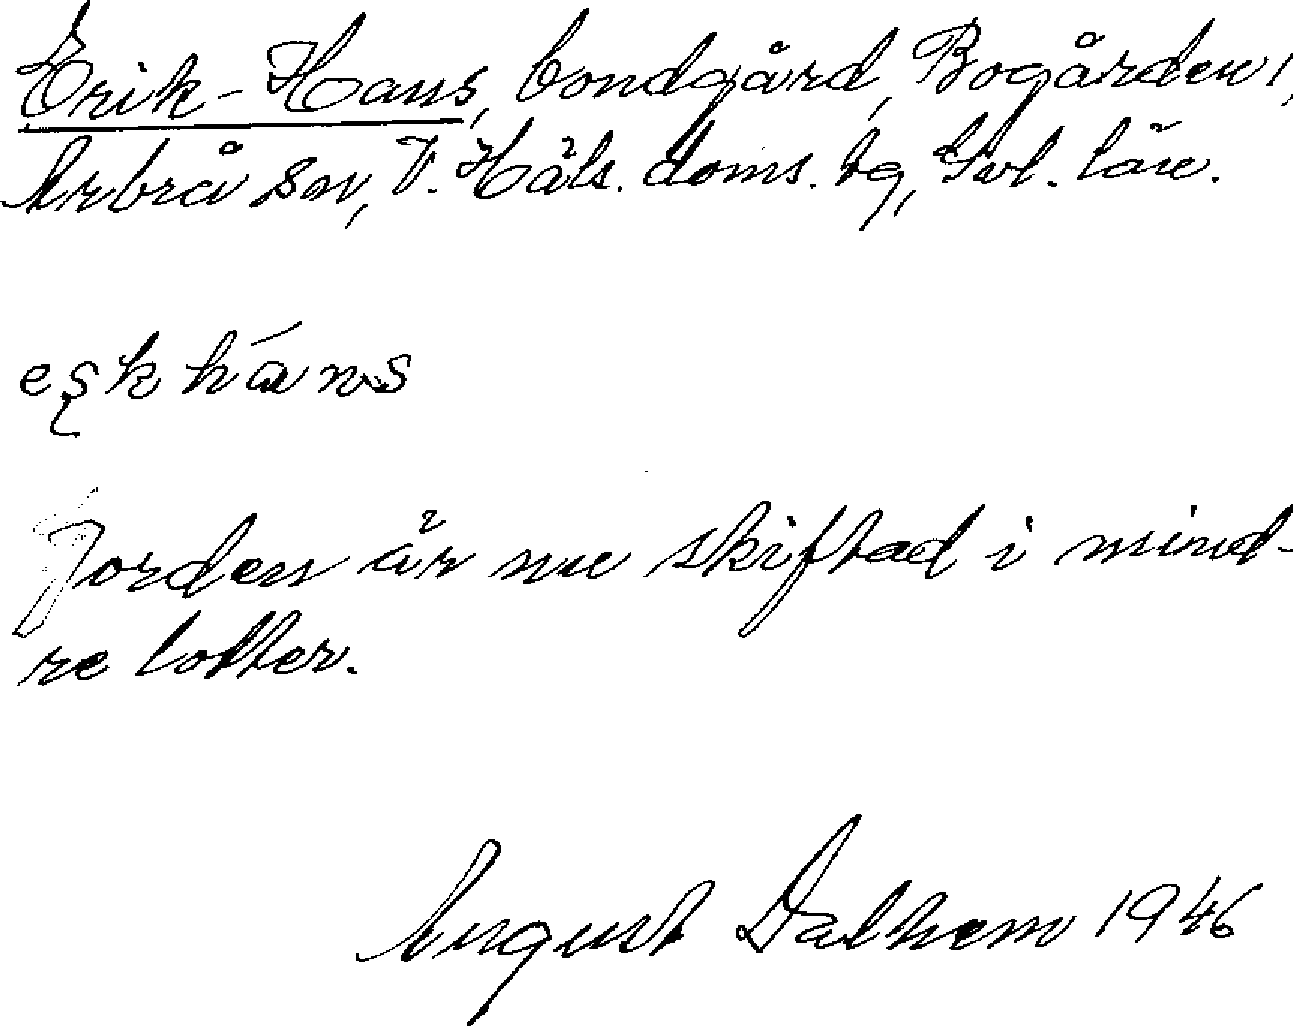 Erik-Hans, bondgård, Bogården,
Arbrå sn, V. Häls. doms. bg, Gvl. län.
eşk háns
Jorden är nu skiftad i mind-
re lotter.
August Dalhem 1946